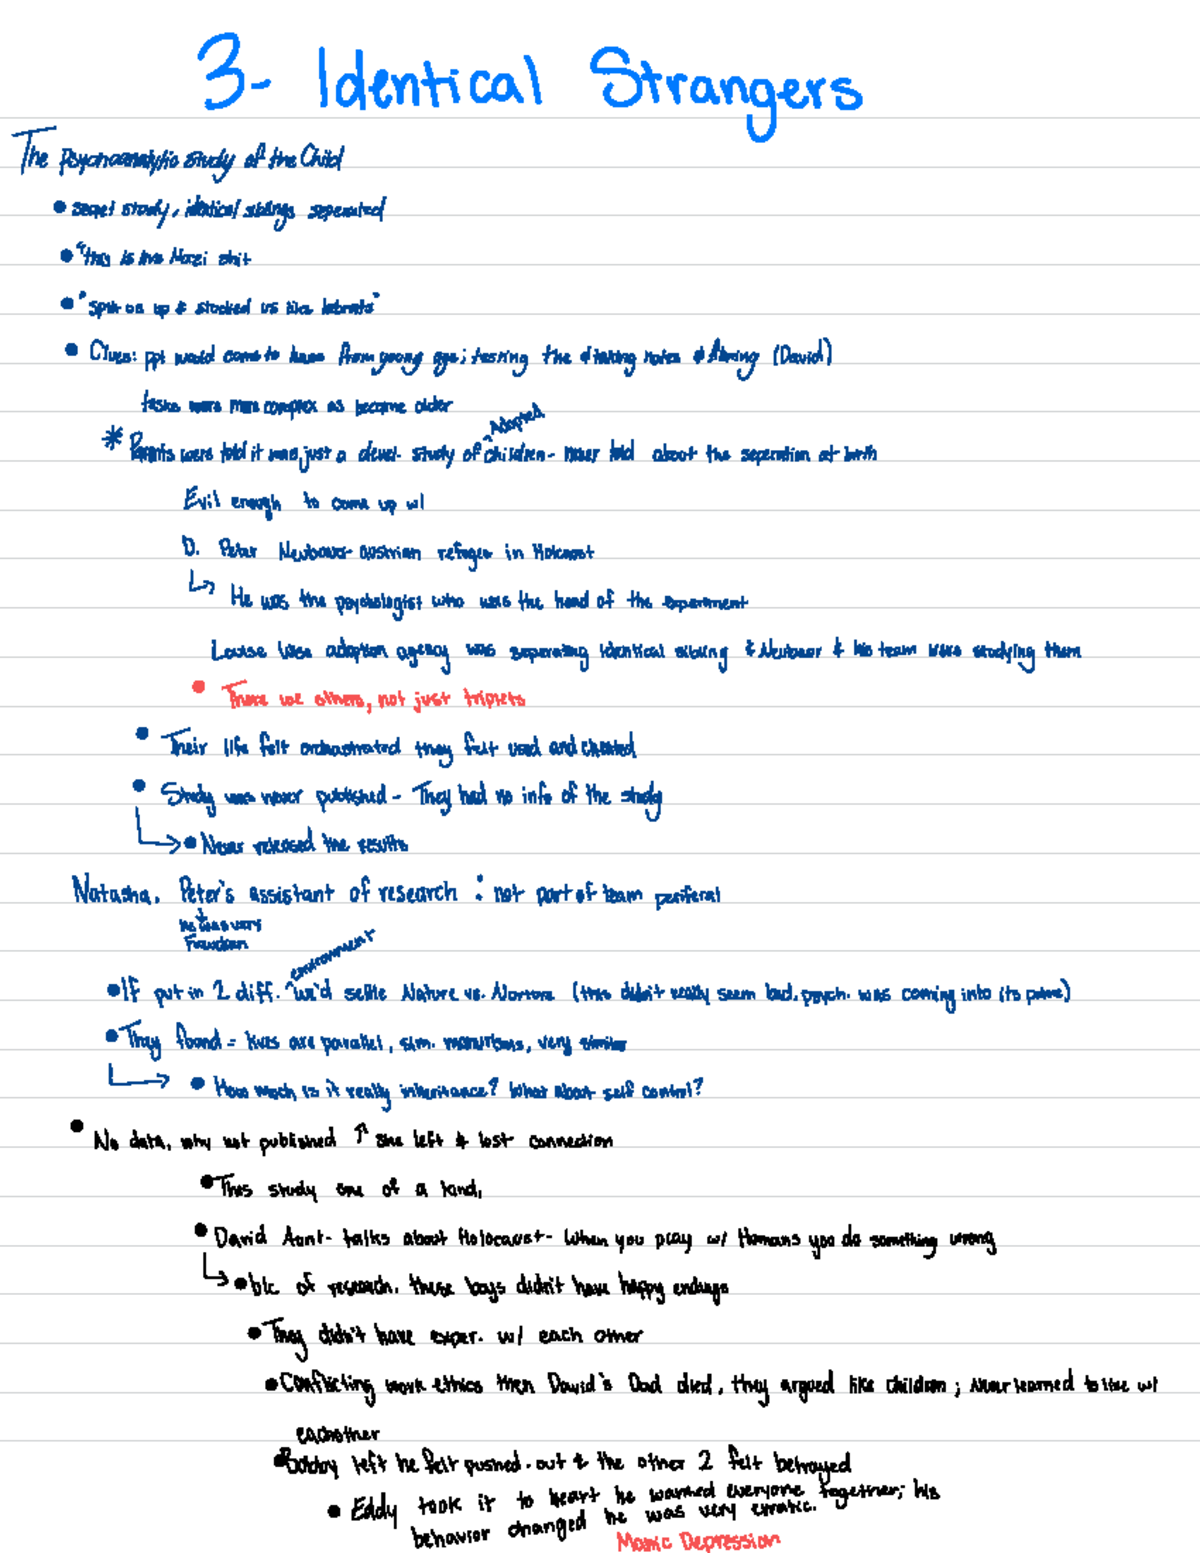 3- Identical Strangers
The Psychoanalytic study of the Child
• secret study, identical siblings seperated
• "this is like Nazi shit
• "split us up & studied us like labrats"
• Clues: ppl would come to house from young age; testing the & taking notes & filming (David)
tasks were more complex as became older
* Parents were told it was just a devel. study of ^Adopted children - never told about the seperation at birth
Evil enough to come up w/
D. Peter Neubauer- austrian refugee in Holocaust
↳ He was the psychologist who was the head of the experiment
Louise Wise adoption agency was seperating identical sibling & Neubauer & his team were studying them
• There are others, not just triplets
• Their life felt orchastrated they felt used and cheated
• Study was never published - They had no info of the study
↳ • Never released the results
Natasha. Peter's assistant of research : not part of team periferal
he was very
Freudian
• If put in 2 diff. ^environment we'd settle Nature vs. Nurture (this didn't really seem bad, psych. was coming into its prime)
• They found = lives are parallel, sim. , very similar
↳ • How much is it really inheritance? What about self control?
• No data, why not published ↑ she left & lost connection
• This study one of a kind,
• David Aunt- talks about Holocaust- When you play w/ Humans you do something wrong
↳ • b/c of research. these boys didn't have happy endings
• They didn't have exper. w/ each other
• Conflicting work ethics then David's Dad died, they argued like children ; never learned to live w/
eachother
• Bobby left he felt pushed. out & the other 2 felt betrayed
• Eddy took it to heart he wanted everyone together; his
behavior changed he was very erratic.
Manic Depression